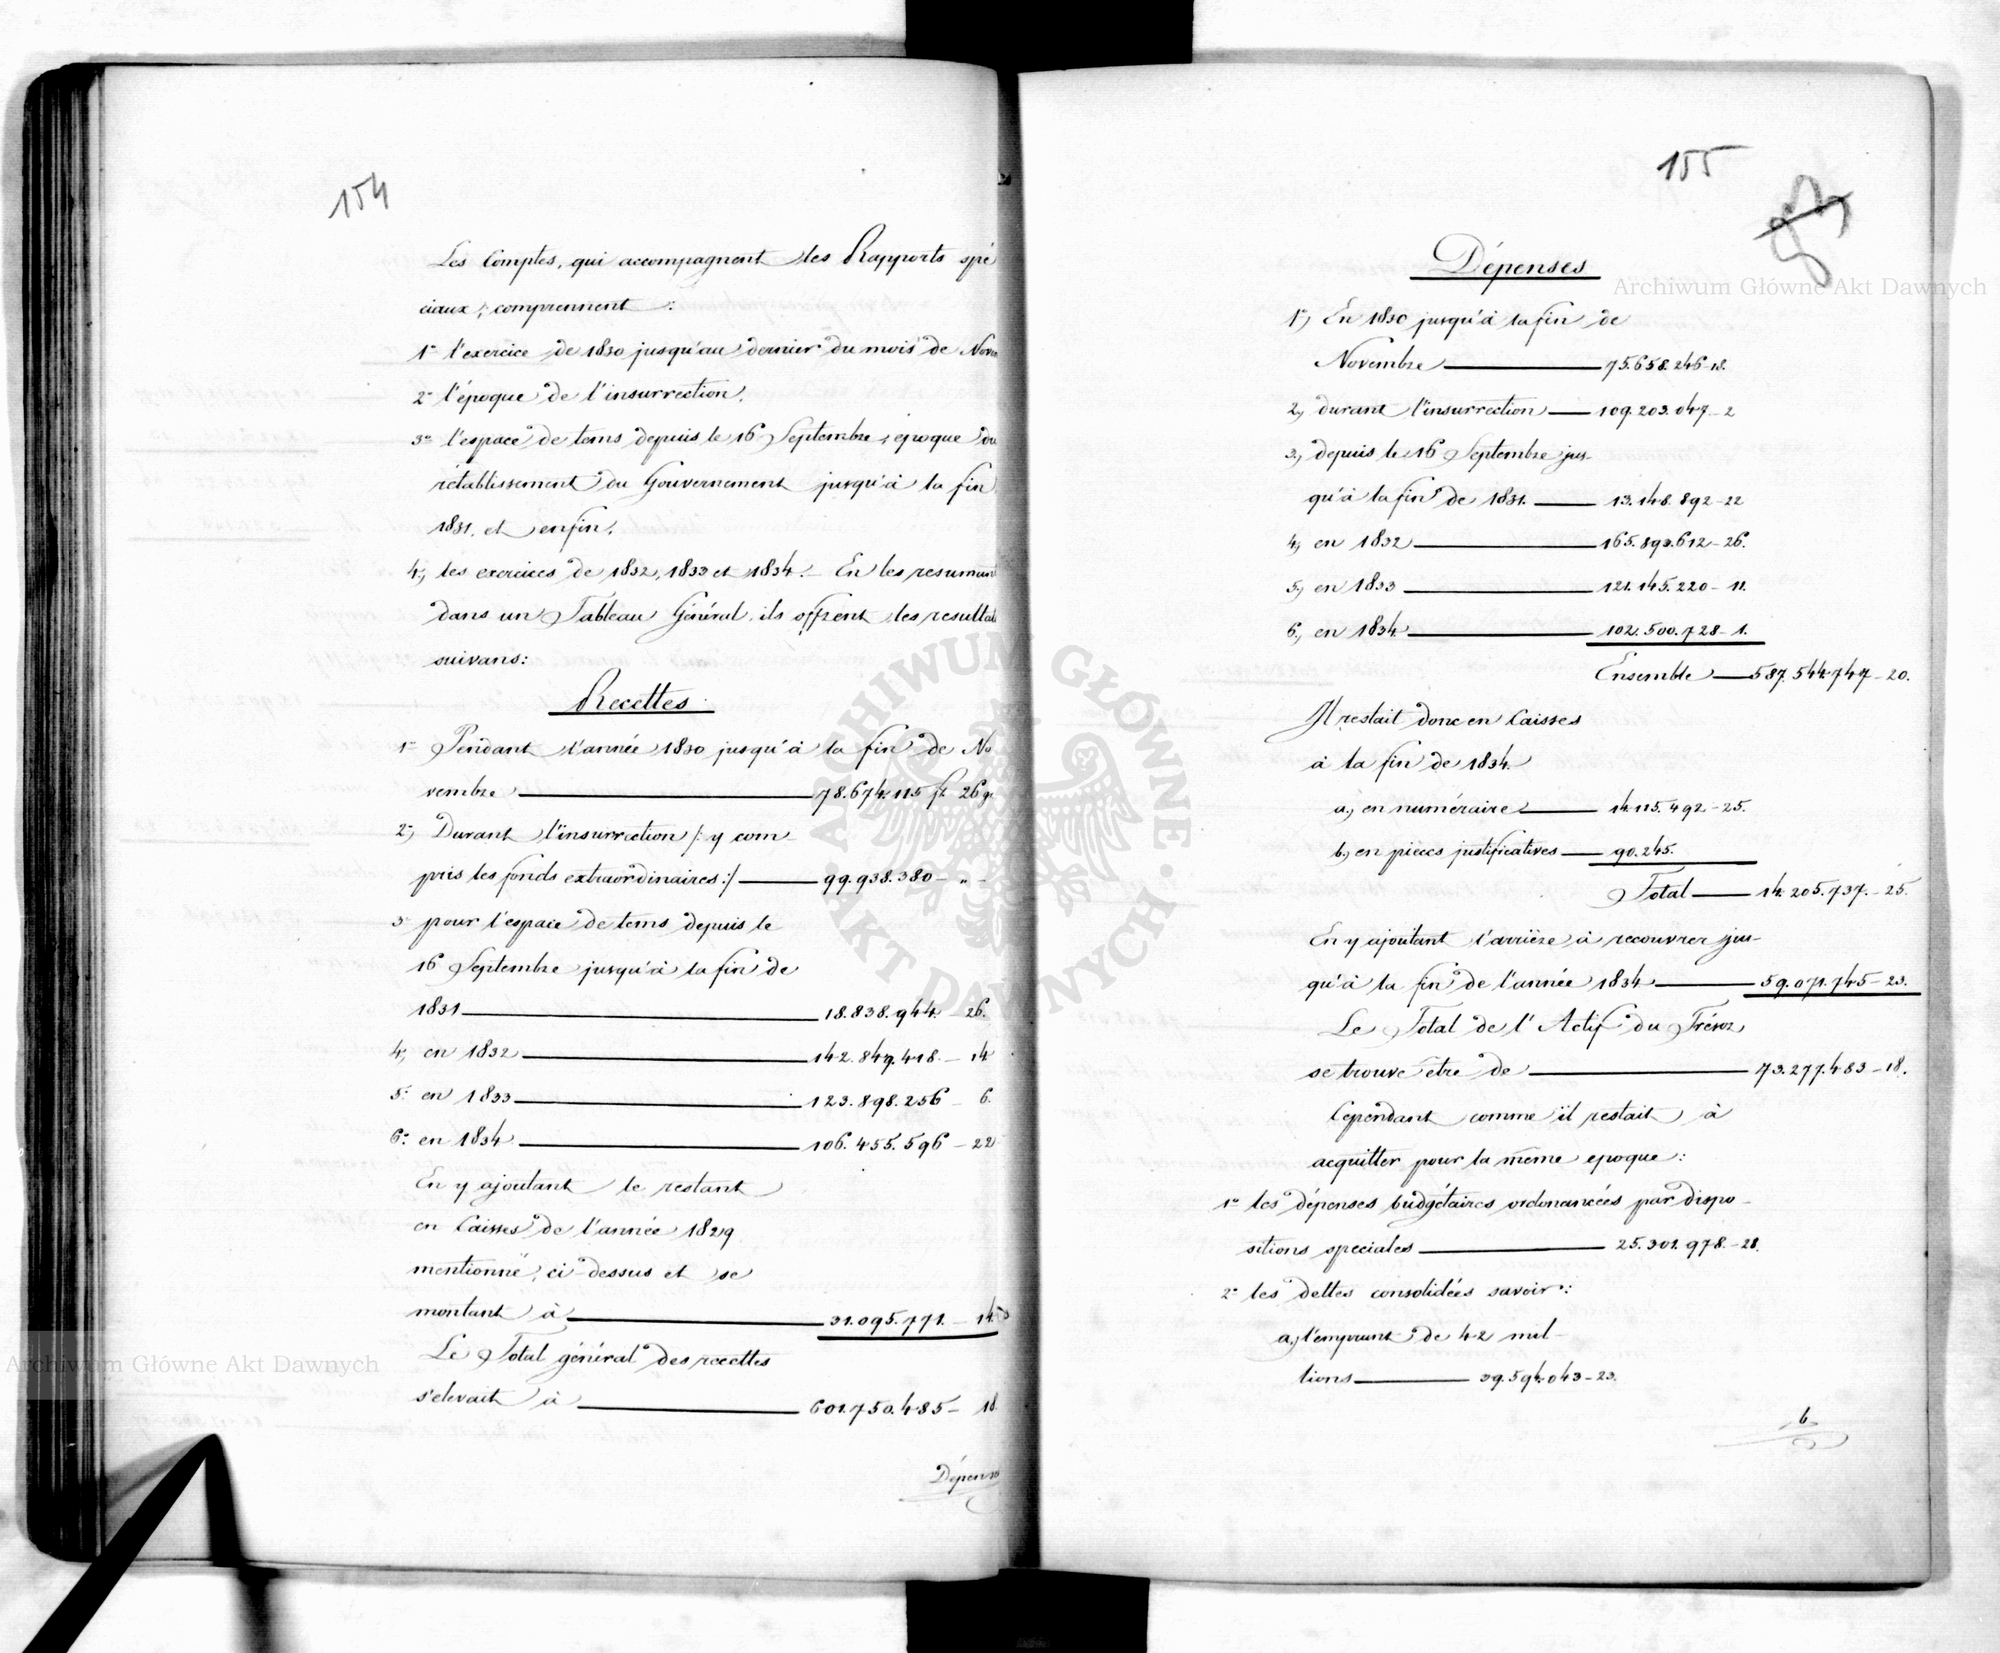 154
Les Comptes, qui accompagnent les Rapports spé
ciaux, comprennent :
1° l'exercice de 1830 jusqu'au dernier du mois de Novem
2° l'époque de l'insurrection.
3° l'espace de tems depuis le 16 Septembre, epoque du
rétablissement du Gouvernement jusqu'à la fin
1831. et enfin.
4., les exercices de 1832, 1833 et 1834. – En les resumant
dans un Tableau Général, ils offrent les resultats
suivans:
Recettes
1° Pendant l'année 1830 jusqu'à la fin de No
vembre 78.674.115 fl 26 gr
2., Durant l'insurrection /: y com–
pris les fonds extraordinaires :/ 99.938.380 – „ –
3° pour l'espace de tems depuis le
16 Septembre jusqu'à la fin de
1831 18.838.944. – 26.
4., en 1832 142.849.418. – 14
5° en 1833 123.898.256 – 6.
6° en 1834 106.455.596 – 22
En y ajoutant le restant
en Caisses de l'année 1829
mentionné, ci-dessus et se
montant à 31.095.771. – 14
Le Total général des recettes
s'elevait à 601.750.485 – 18
Dépenses
155
Dépenses
1°, En 1830 jusqu'à la fin de
Novembre 75.658.246–18.
2., durant l'insurrection 109.203.047–2
3., depuis le 16 Septembre jus–
qu'à la fin de 1831. 13.148.892–22
4., en 1832 165.893.612–26.
5., en 1833 121.145.220–11.
6., en 1834 102.500.728–1.
Ensemble 587.544.747–20.
Il restait donc en Caisses
à la fin de 1834
a., en numéraire 14.115.492–25.
b., en pièces justificatives 90.245.
Total 14.205.737.–25.
En y ajoutant l'arrière à recouvrer jus–
qu'à la fin de l'année 1834 59.071.745–23.
Le Total de l'Actif du Trésor
se trouve être de 73.277.483–18.
Cependant comme il restait à
acquitter pour la même epoque:
1° les dépenses budgétaires ordonancées par dispo–
sitions speciales 25.301.978.–28.
2° les dettes consolidées savoir:
a., l'emprunt de 42 mil–
lions 39.594.043–23.
b
Archiwum Główne Akt Dawnych
Archiwum Główne Akt Dawnych
ARCHIWUM GŁÓWNE · AKT DAWNYCH ·